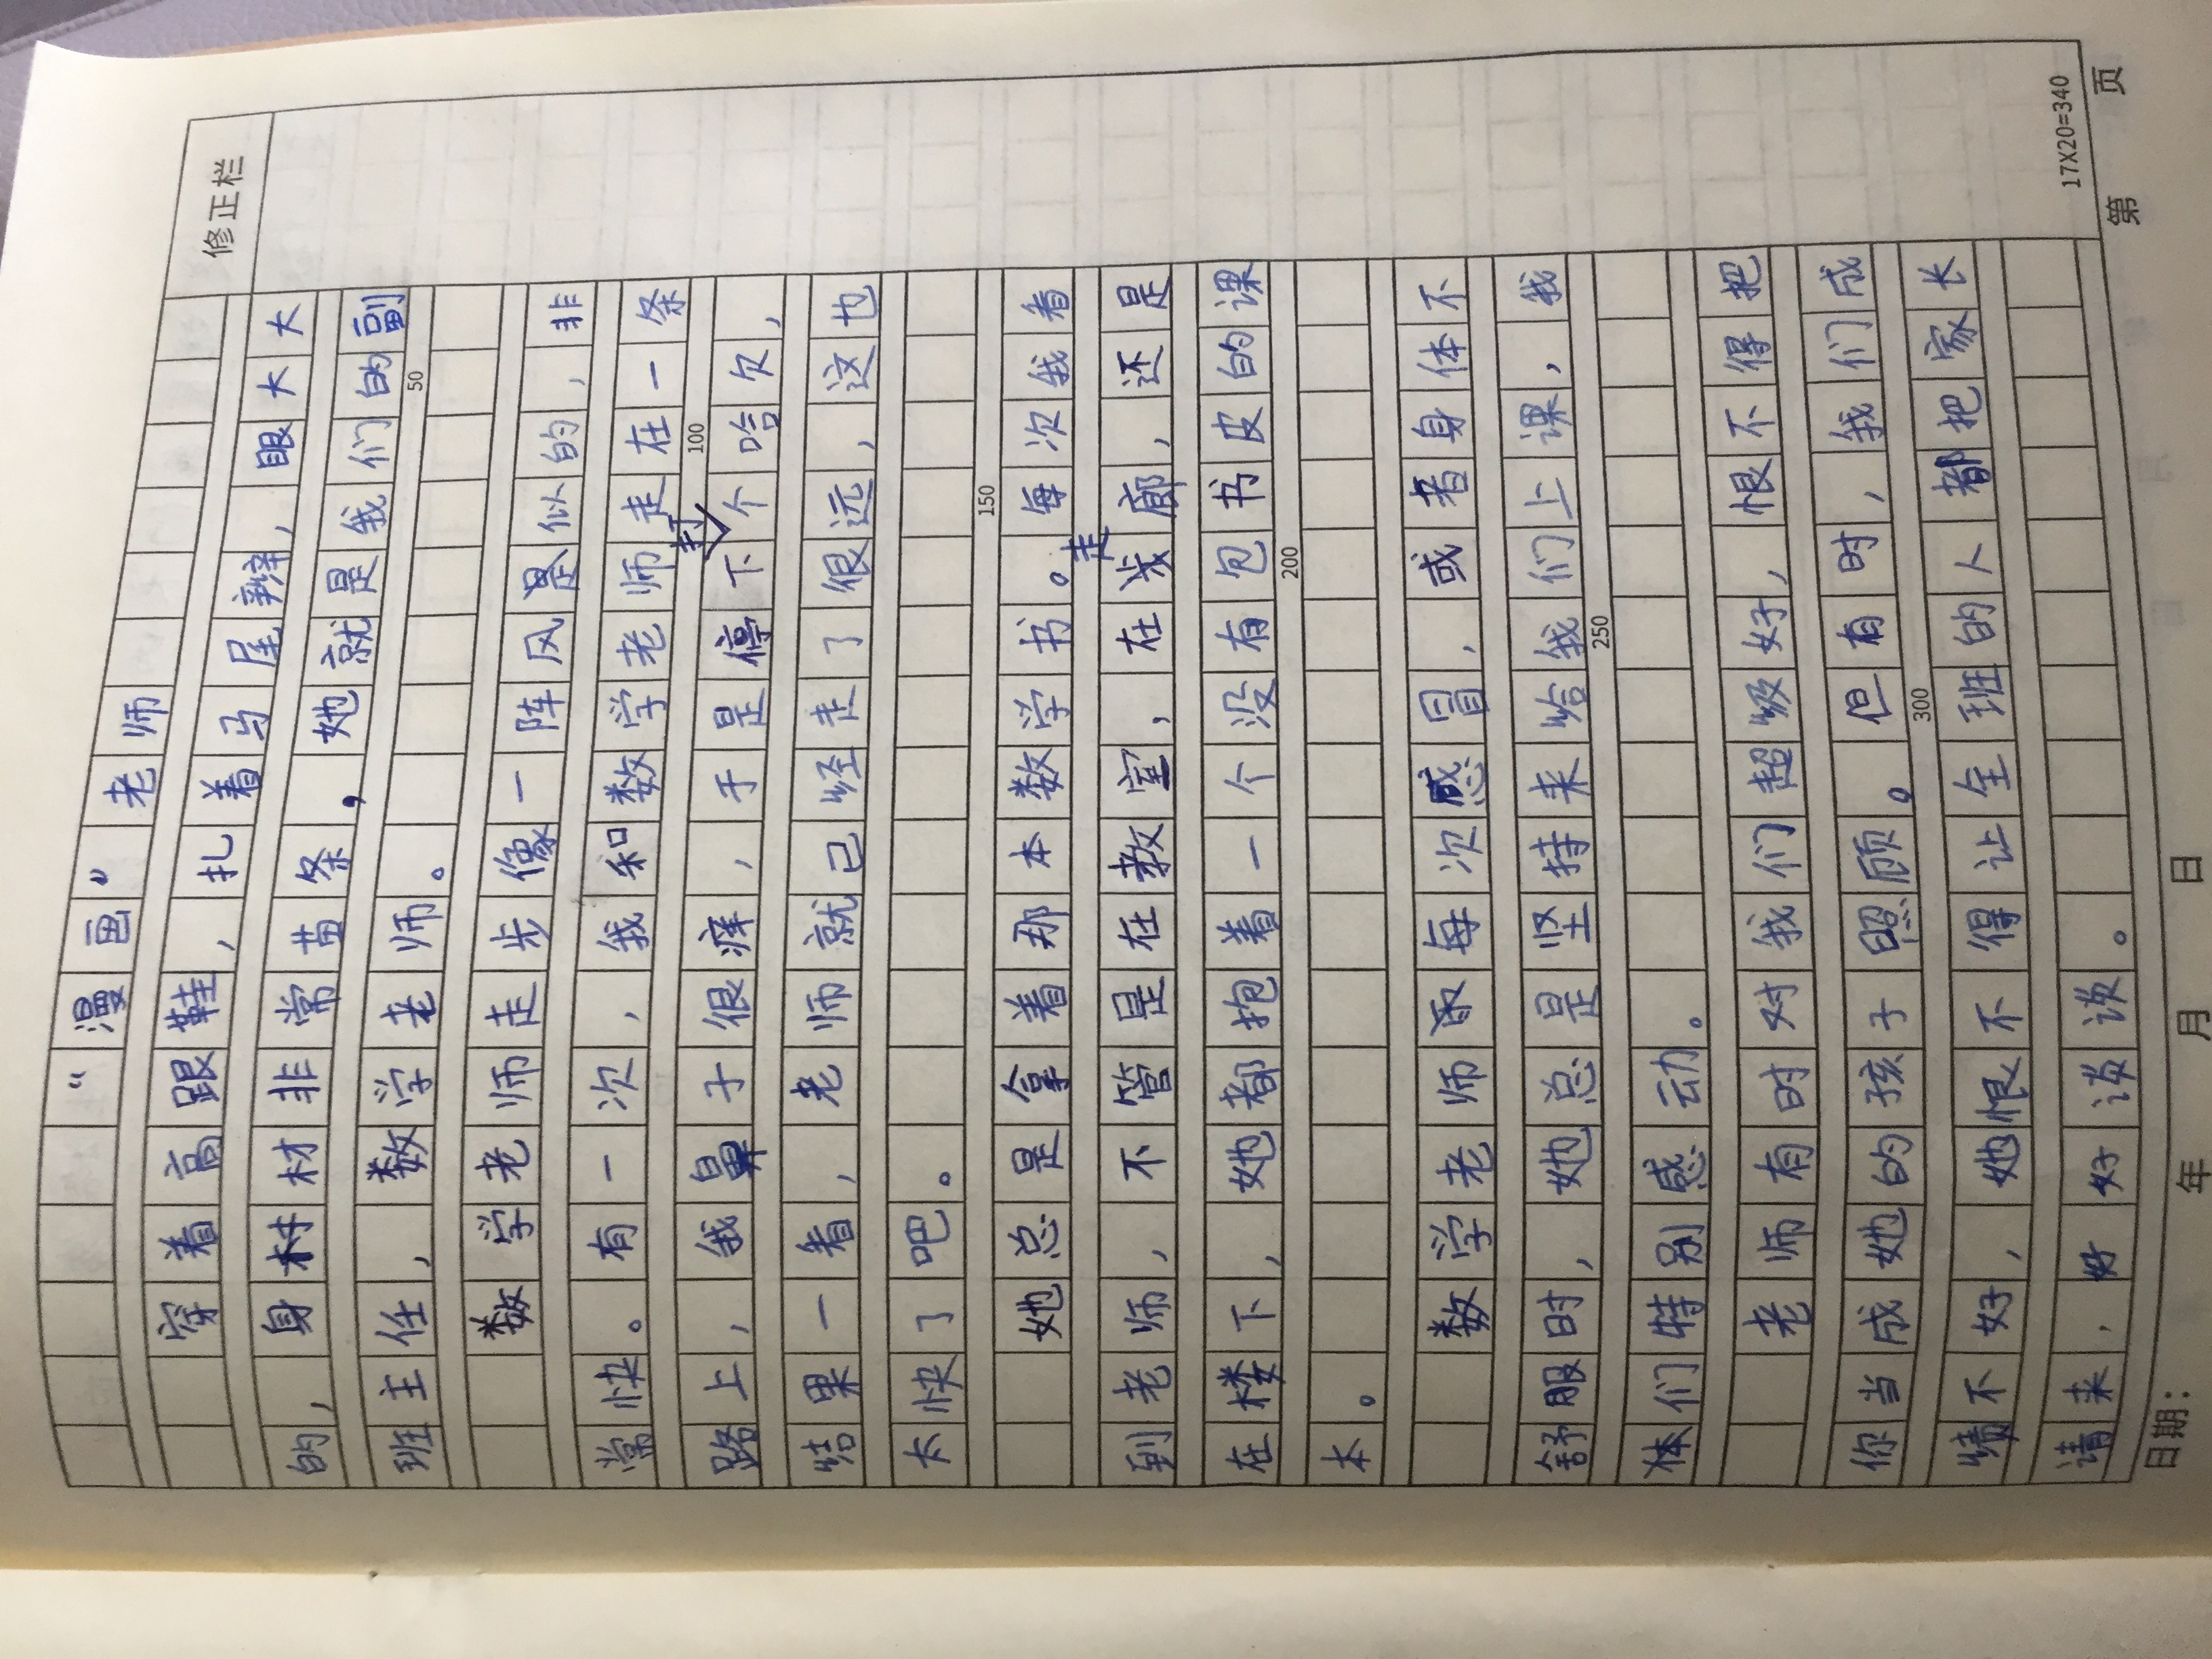 修正栏
“漫画”老师
穿着高跟鞋，扎着马尾辫，眼大大
的，身材材非常苗条，她就是我们的副
班主任，数学老师。
50
数学老师走步像一阵风是似的，非
常快。有一次，我和数学老师走在一条
路上，我鼻子很痒，于是停下打个哈欠，
100
结果一看，老师就已经走了很远，这也
太快了吧。
150
她总是拿着那本数学书。每次我看
到老师，不管是在教室，在走廊，还是
在楼下，她都抱着一个没有包书皮的课
200
本。
数学老师每次感冒，或者身体不
舒服时，她总是坚持来给我们上课，我
250
们特别感动。
老师有时对我们超级好，恨不得把
你当成她的孩子照顾。但有时，我们成
300
绩不好，她恨不得让全班的人都把家长
请来，好好谈谈。
17X20=340
日期： 年 月 日 第 页